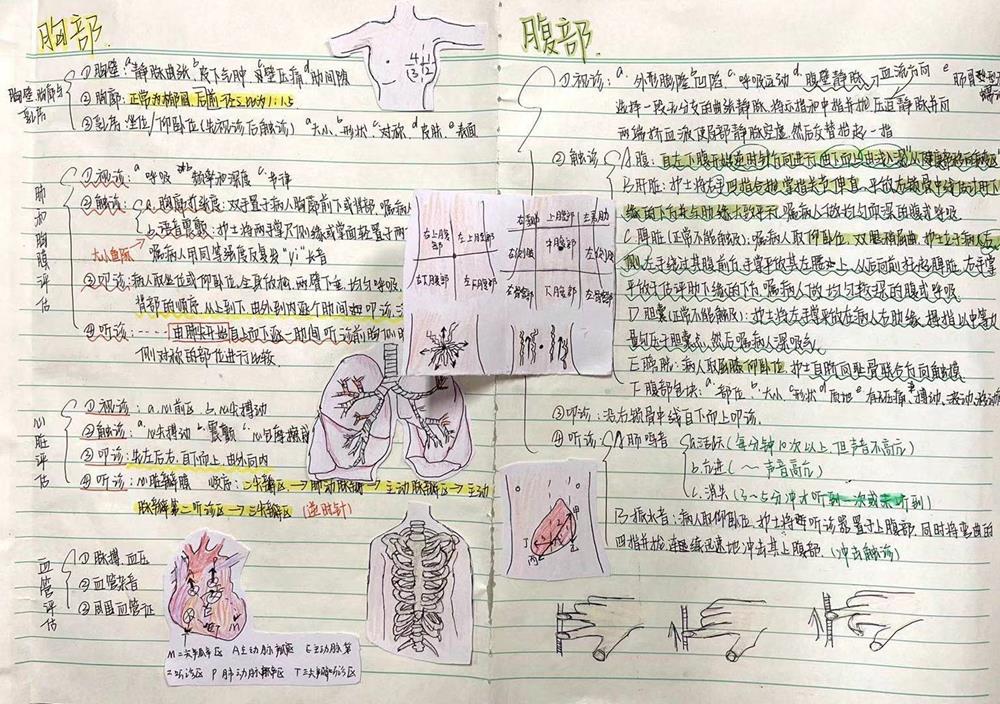 胸部.
胸壁、胸廓与乳房
①胸壁：a.静脉曲张 b.皮下气肿 c.胸壁压痛 d.肋间隙
②胸廓：正常为椭圆,后前:左右比为1:1.5
③乳房 坐位/仰卧位(先视诊后触诊) a.大小 b.形状 c.对称 d.皮肤 e.表面
4 1
3 2
肺和胸膜评估
①视诊：a.呼吸 b.频率和深度 c.节律
②触诊：a.胸廓扩张度：双手置于病人胸廓前下或背部,嘱病人
b.语音震颤：护士将两手掌尺侧缘或掌面轻置于两
嘱病人用同等强度反复发"yi"长音
③叩诊：病人取坐位或仰卧位,全身放松,两臂下垂,均匀呼吸,
背部的顺序,从上到下,由外到内逐个肋间叩诊,
④听诊：……由肺尖开始自上而下逐一肋间听诊前胸
侧对称的部位进行比较
心脏评估
①视诊：a.心前区 b.心尖搏动
②触诊：a.心尖搏动 b.震颤 c.心包摩擦感
③叩诊：先左后右,自下而上,由外向内
④听诊：心脏瓣膜 顺序：二尖瓣区→肺动脉瓣→主动脉瓣区→主动
脉瓣第二听诊区→三尖瓣区 (逆时针)
血管评估
①脉搏、血压
②血管杂音
③周围血管征
M 二尖瓣区 A 主动脉瓣区 E 主动脉第
二听诊区 P 肺动脉瓣区 T 三尖瓣听诊区
右上腹部 左上腹部
右下腹部 左下腹部
右季肋 上腹部 左季肋
中腹部
下腹部
腹部.
①视诊：a.外形膨隆 b.凹陷 c.呼吸运动 d.腹壁静脉 血流方向 e.
选择一段无分支的曲张静脉,将示指和中指并拢压迫静脉并向
两端挤血液使局部静脉空虚,然后交替抬起一指
②触诊
A.腹：自左下腹开始逆时针方向进行
B.肝脏：护士将左手四指合拢,掌指关节伸直,平放右锁骨中线估计肝下
缘的下方与肋缘大致平行,嘱病人做均匀而深的腹式呼吸
C.脾脏(正常不能触及)：嘱病人取仰卧位,双腿稍屈曲,护士立于病人右
侧,左手绕过其腹前方,手掌平放其左腰部上,从后向前托起脾脏,右手掌
平放于估计肋下缘的下方,嘱病人做均匀较深的腹式呼吸
D.胆囊(正常不能触及)：护士将左手掌平放在病人右肋缘,拇指以中等力
量勾压于胆囊点,然后嘱病人深吸气
E.膀胱：病人取屈膝仰卧位,护士自脐向耻骨联合方向触摸
F.腹部包块：a.部位、b.大小 c.形状 d.质地 e.有无压痛、搏动、
③叩诊：沿右锁骨中线自下而上叩诊.
④听诊
A.肠鸣音
a.活跃(每分钟10次以上,但声音不高亢)
b.亢进(～声音高亢)
c.消失(3～5分)才听到一次或未听到)
B.振水音：病人取仰卧位,护士将听诊器置于上腹部,同时将弯曲的
四指并拢,连续迅速地冲击其上腹部.(冲击触诊)